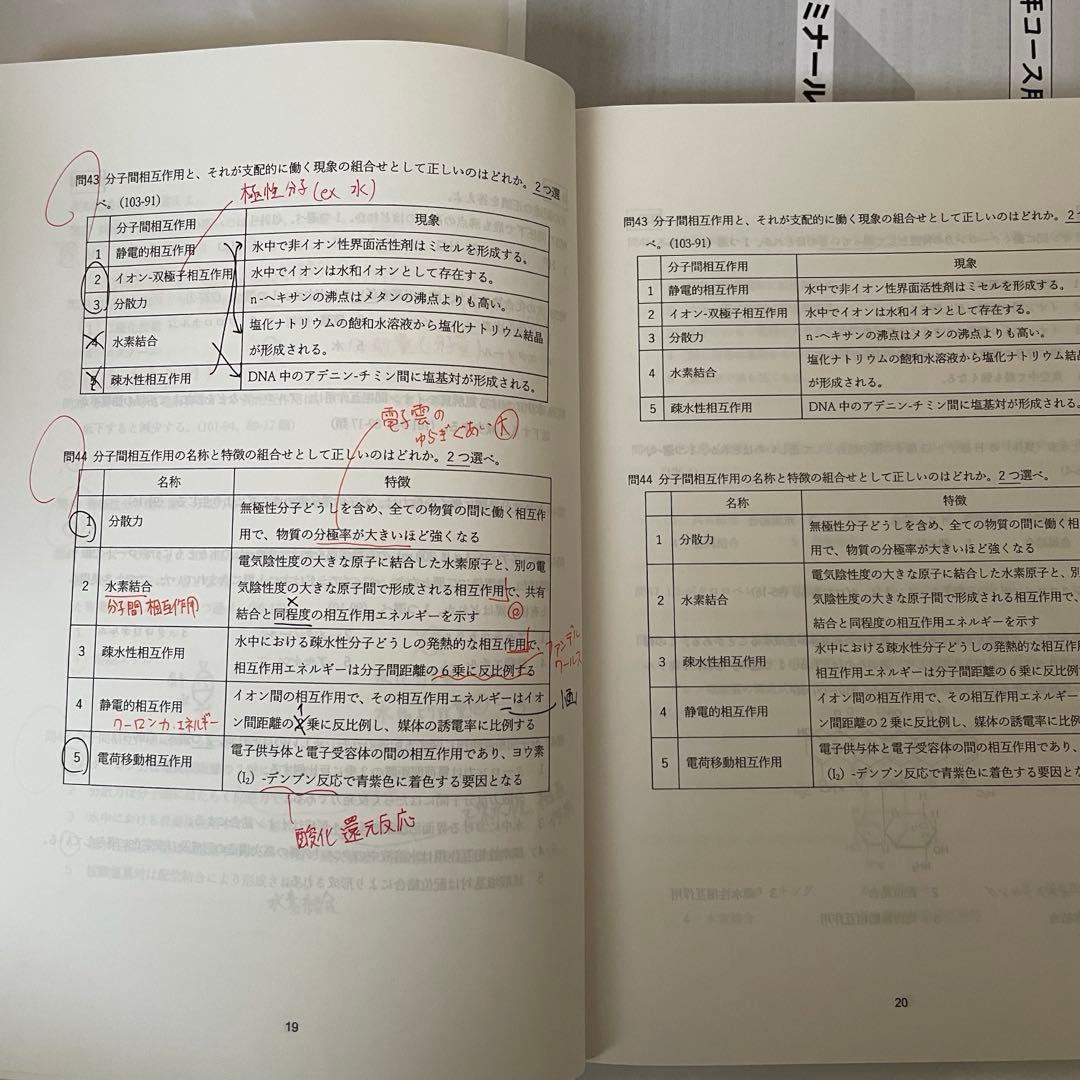 ミナール
手コース用
問43 分子間相互作用と、それが支配的に働く現象の組合せとして正しいのはどれか。2つ選
べ。(103-91)
極性分子(ex 水)
分子間相互作用 現象
1 静電的相互作用 水中で非イオン性界面活性剤はミセルを形成する。
2 イオン-双極子相互作用 水中でイオンは水和イオンとして存在する。
3 分散力 n-ヘキサンの沸点はメタンの沸点よりも高い。
4 水素結合 塩化ナトリウムの飽和水溶液から塩化ナトリウム結晶
が形成される。
5 疎水性相互作用 DNA 中のアデニン-チミン間に塩基対が形成される。
電子雲の
ゆらぎぐあい 大
問44 分子間相互作用の名称と特徴の組合せとして正しいのはどれか。2つ選べ。
名称 特徴
1 分散力 無極性分子どうしを含め、全ての物質の間に働く相互作
用で、物質の分極率が大きいほど強くなる
2 水素結合 電気陰性度の大きな原子に結合した水素原子と、別の電
気陰性度の大きな原子間で形成される相互作用で、共有
結合と同程度の相互作用エネルギーを示す
分子間相互作用
3 疎水性相互作用 水中における疎水性分子どうしの発熱的な相互作用で、
相互作用エネルギーは分子間距離の6乗に反比例する
ファンデル
ワールス
4 静電的相互作用 イオン間の相互作用で、その相互作用エネルギーはイオ
間距離の2乗に反比例し、媒体の誘電率に比例する
1
クーロン力.エネルギー
5 電荷移動相互作用 電子供与体と電子受容体の間の相互作用であり、ヨウ素
(I₂)-デンプン反応で青紫色に着色する要因となる
酸化還元反応
19
問43 分子間相互作用と、それが支配的に働く現象の組合せとして正しいのはどれか。2
べ。(103-91)
分子間相互作用 現象
1 静電的相互作用 水中で非イオン性界面活性剤はミセルを形成する。
2 イオン-双極子相互作用 水中でイオンは水和イオンとして存在する。
3 分散力 n-ヘキサンの沸点はメタンの沸点よりも高い。
4 水素結合 塩化ナトリウムの飽和水溶液から塩化ナトリウム結
が形成される。
5 疎水性相互作用 DNA 中のアデニン-チミン間に塩基対が形成される。
問44 分子間相互作用の名称と特徴の組合せとして正しいのはどれか。2つ選べ。
名称 特徴
1 分散力 無極性分子どうしを含め、全ての物質の間に働く相
用で、物質の分極率が大きいほど強くなる
2 水素結合 電気陰性度の大きな原子に結合した水素原子と、別
気陰性度の大きな原子間で形成される相互作用で、
結合と同程度の相互作用エネルギーを示す
3 疎水性相互作用 水中における疎水性分子どうしの発熱的な相互作用
相互作用エネルギーは分子間距離の6乗に反比例
4 静電的相互作用 イオン間の相互作用で、その相互作用エネルギー
ン間距離の2乗に反比例し、媒体の誘電率に比例
5 電荷移動相互作用 電子供与体と電子受容体の間の相互作用であり、
(I₂)-デンプン反応で青紫色に着色する要因とな
20